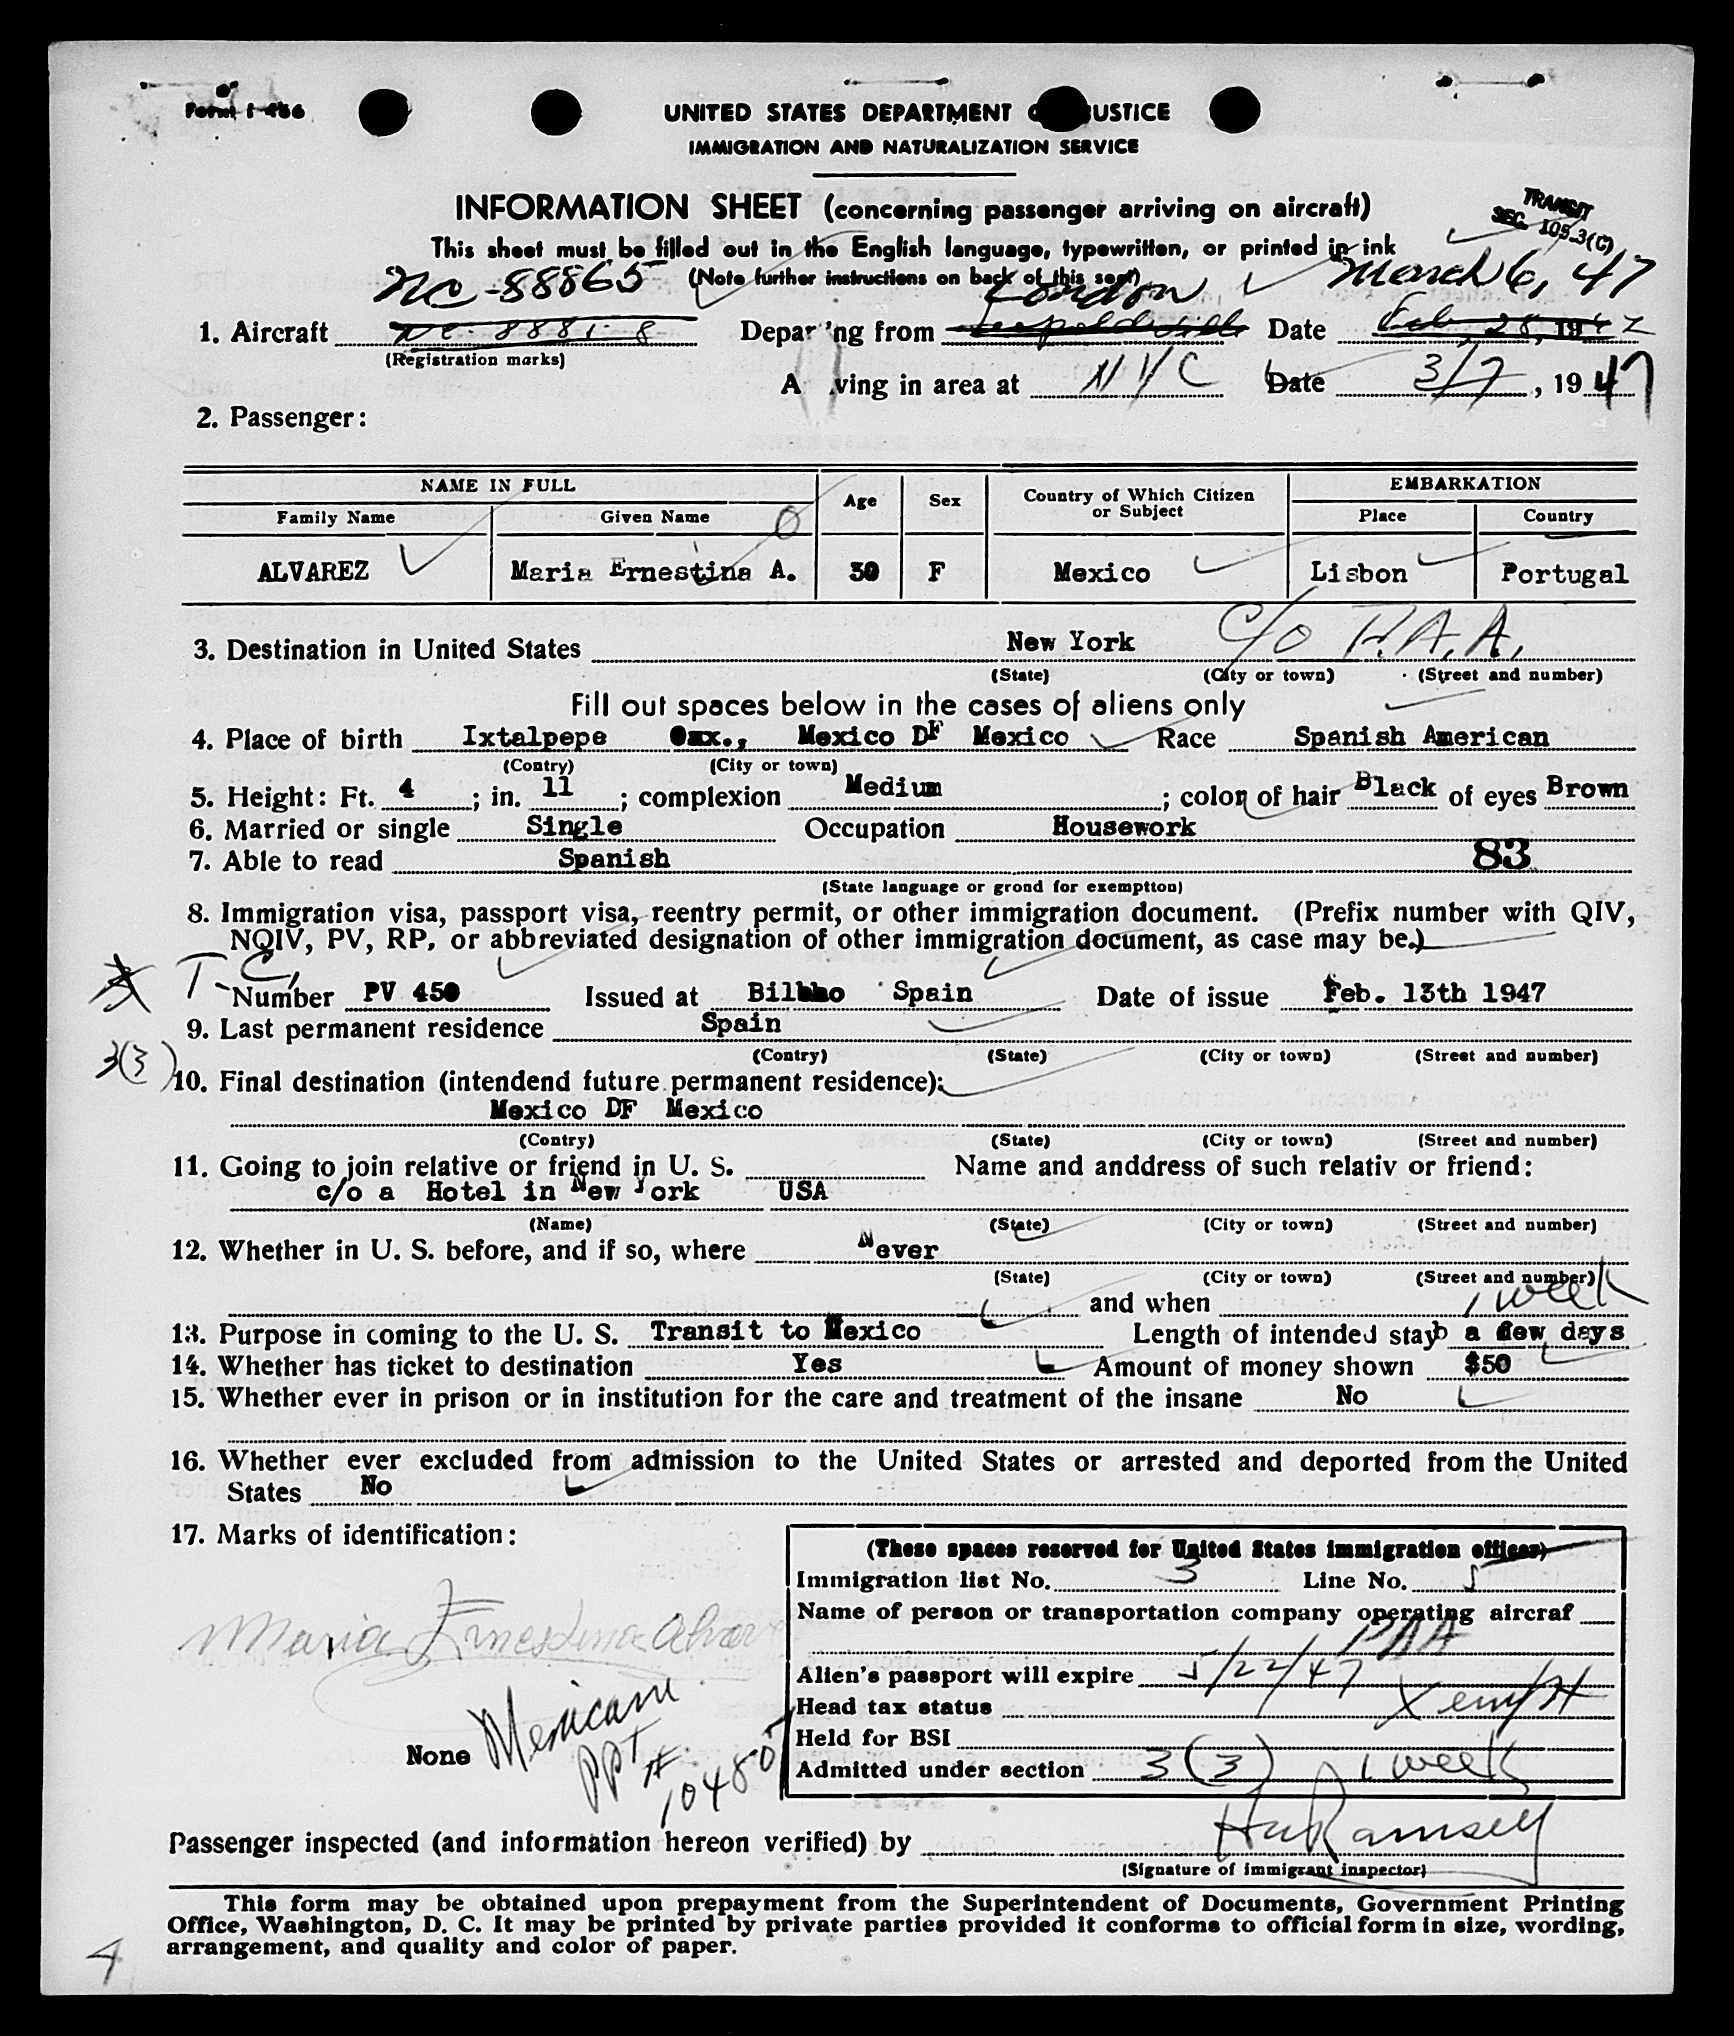 Form I-466
UNITED STATES DEPARTMENT O USTICE
IMMIGRATION AND NATURALIZATION SERVICE
INFORMATION SHEET (concerning passenger arriving on aircraft)
TRANSIT
SEC. 105.3(C)
This sheet must be filled out in the English language, typewritten, or printed in ink
(Note further instructions on back of this seet)
NC-88865 London March 6, 47
1. Aircraft NC 8881 8 Depar'ng from Leopoldville Date Feb 28, 1947
(Registration marks)
A ving in area at NYC Date 3/7, 1947
2. Passenger:
NAME IN FULL Age Sex Country of Which Citizen or Subject EMBARKATION
Family Name Given Name Place Country
ALVAREZ Maria Ernestina A. 30 F Mexico Lisbon Portugal
3. Destination in United States New York c/o P.A.A.
(State) (City or town) (Street and number)
Fill out spaces below in the cases of aliens only
4. Place of birth Ixtalpepe Oax., Mexico DF Mexico Race Spanish American
(Contry) (City or town)
5. Height: Ft. 4; in. 11; complexion Medium; color of hair Black of eyes Brown
6. Married or single Single Occupation Housework
7. Able to read Spanish 83
(State language or grond for exemption)
8. Immigration visa, passport visa, reentry permit, or other immigration document. (Prefix number with QIV,
NQIV, PV, RP, or abbreviated designation of other immigration document, as case may be.)
T-C,
Number PV 450 Issued at Bilbao Spain Date of issue Feb. 13th 1947
9. Last permanent residence Spain
(Contry) (State) (City or town) (Street and number)
3(3)
10. Final destination (intendend future permanent residence):
Mexico DF Mexico
(Contry) (State) (City or town) (Street and number)
11. Going to join relative or friend in U. S. Name and anddress of such relativ or friend:
c/o a Hotel in New York USA
(Name) (State) (City or town) (Street and number)
12. Whether in U. S. before, and if so, where Never
(State) (City or town) (Street and number)
and when 1 week
13. Purpose in coming to the U. S. Transit to Mexico Length of intended stay a few days
14. Whether has ticket to destination Yes Amount of money shown $50
15. Whether ever in prison or in institution for the care and treatment of the insane No
16. Whether ever excluded from admission to the United States or arrested and deported from the United
States No
17. Marks of identification:
(These spaces reserved for United States immigration officer)
Immigration list No. 3 Line No. 5
Name of person or transportation company operating aircraf
PAA
Maria Ernestina Alvarez
Alien's passport will expire 5/22/47
Head tax status Xempt
Held for BSI
Admitted under section 3(3) 1 week
None
Mexican
PPT #
10480
Passenger inspected (and information hereon verified) by H Ramsey
(Signature of immigrant inspector)
This form may be obtained upon prepayment from the Superintendent of Documents, Government Printing
Office, Washington, D. C. It may be printed by private parties provided it conforms to official form in size, wording,
arrangement, and quality and color of paper.
4